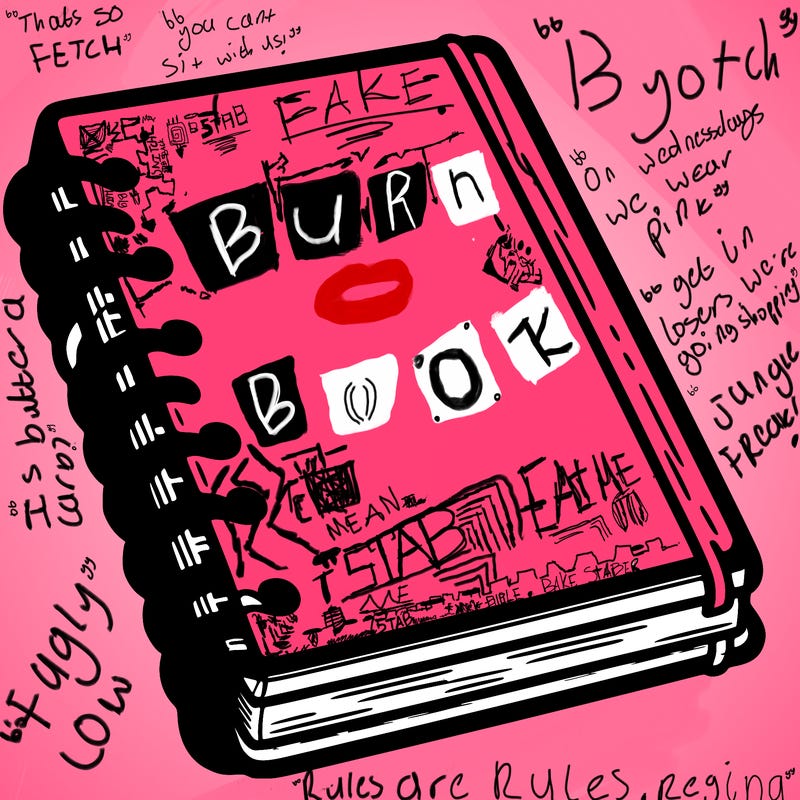 "Thats so
FETCH"
"you cant
sit with us!"
"Byotch"
"On wednesdays
we wear
pink"
"get in
losers we're
going shopping"
"Jungle
FREAK!
"Is butter a
carb?"
"Fugly
cow
"Rules are Rules, Regina"
FAKE
STAB
BURn
BOOK
MEAN
STAB
EAT ME
ME
STAB
BIBLE. BAKE STABER